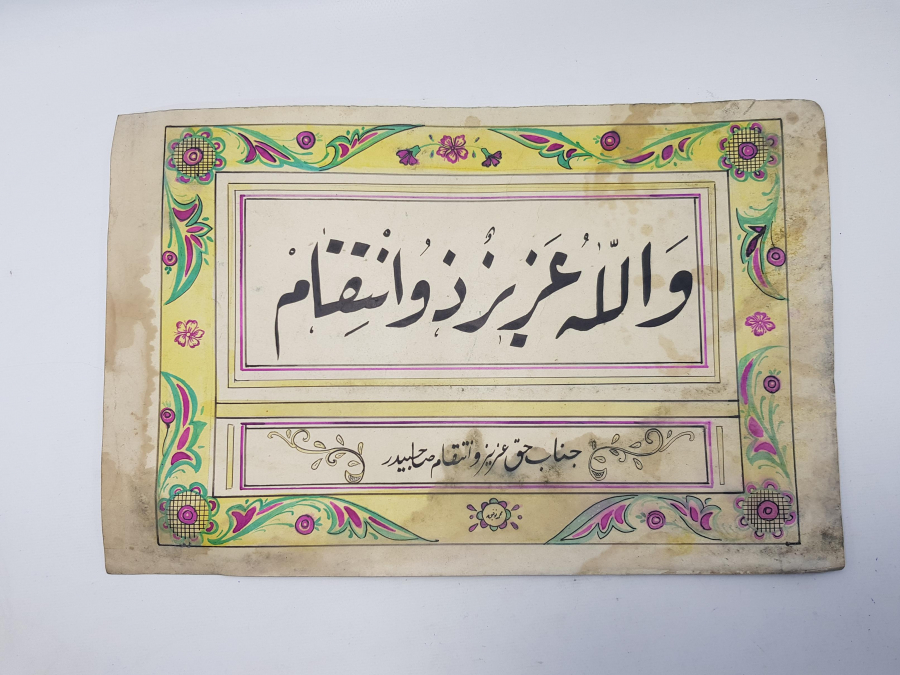 وَاللّٰهُ عَزِيزٌ ذُو انْتِقَامْ
جناب حق عزیز و انتقام صاحبیدر